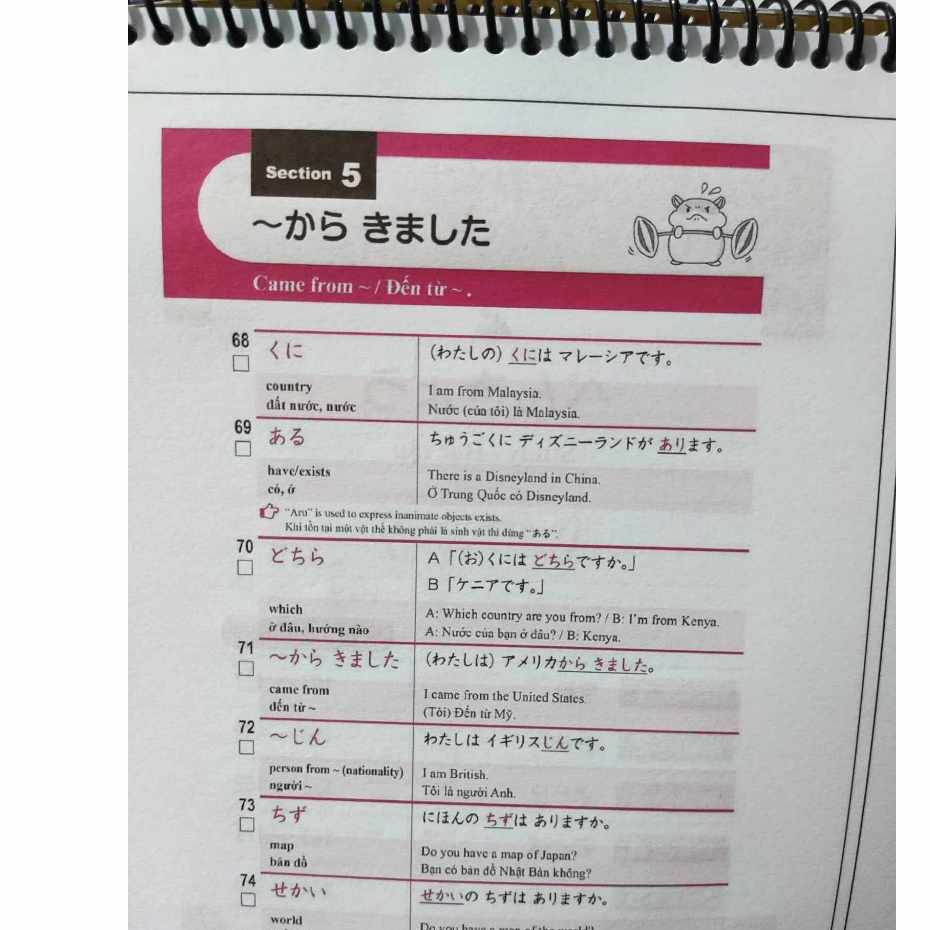 Section 5
～から きました
Came from ~ / Đến từ ~ .
68
くに
(わたしの) くには マレーシアです。
country
đất nước, nước
I am from Malaysia.
Nước (của tôi) là Malaysia.
69
ある
ちゅうごくに ディズニーランドが あります。
have/exists
có, ở
There is a Disneyland in China.
Ở Trung Quốc có Disneyland.
“Aru” is used to express inanimate objects exists.
Khi tồn tại một vật thể không phải là sinh vật thì dùng “ある”.
70
どちら
A「(お)くには どちらですか。」
B「ケニアです。」
which
ở đâu, hướng nào
A: Which country are you from? / B: I’m from Kenya.
A: Nước của bạn ở đâu? / B: Kenya.
71
～から きました
(わたしは) アメリカから きました。
came from
đến từ ~
I came from the United States.
(Tôi) Đến từ Mỹ.
72
～じん
わたしは イギリスじんです。
person from ~ (nationality)
người ~
I am British.
Tôi là người Anh.
73
ちず
にほんの ちずは ありますか。
map
bản đồ
Do you have a map of Japan?
Bạn có bản đồ Nhật Bản không?
74
せかい
せかいの ちずは ありますか。
world
Do you have a map of the world?